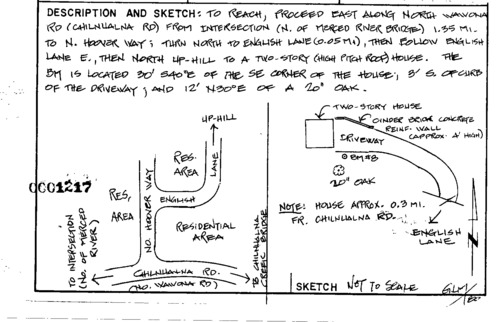 DESCRIPTION AND SKETCH: TO REACH, PROCEED EAST ALONG NORTH WAWONA
RD (CHILNUALNA RD) FROM INTERSECTION (N. OF MERCED RIVER BRIDGE) 1.35 MI.
TO N. HOOVER WAY; TURN NORTH TO ENGLISH LANE (0.05 MI), THEN FOLLOW ENGLISH
LANE E., THEN NORTH UP-HILL TO A TWO-STORY (HIGH PITCH ROOF) HOUSE. THE
BM IS LOCATED 30' S40°E OF THE SE CORNER OF THE HOUSE; 5' S. OF CURB
OF THE DRIVEWAY; AND 12' N30°E OF A 20" OAK.
TWO-STORY HOUSE
UP-HILL
CINDER BRICK CONCRETE
REINF. WALL
(APPROX. 4' HIGH)
DRIVEWAY
RES.
AREA
LANE
BM#8
20" OAK
0001217
RES.
AREA
NO. HOOVER WAY
ENGLISH
NOTE: HOUSE APPROX. 0.3 MI.
FR. CHILNUALNA RD.
RESIDENTIAL
AREA
ENGLISH
LANE
TO INTERSECTION
(NO. OF MERCED
RIVER)
TO CHILNUALNA
CREEK BRIDGE
N
CHILNUALNA RD.
(NO. WAWONA RD)
SKETCH NOT TO SCALE
GLM/80